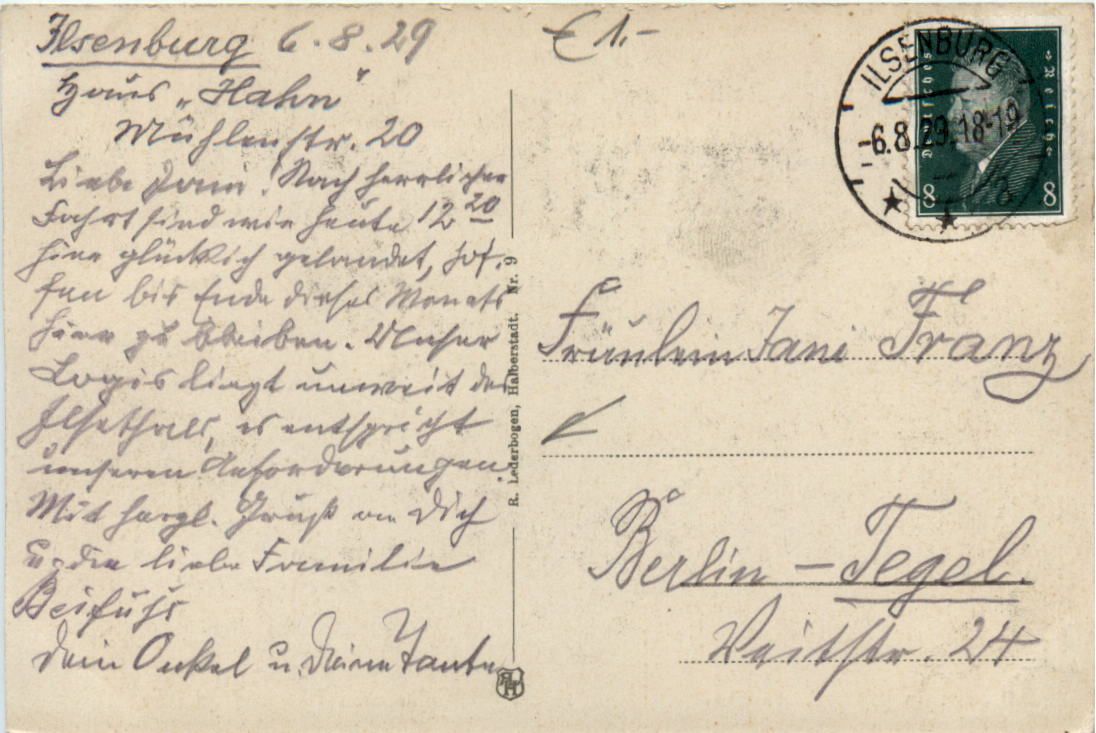 Ilsenburg 6.8.29
Haus „Hahn"
Mühlenstr. 20
Liebe Jani! Nach herrlicher
Fahrt sind wir heute 12 20
hier glücklich gelandet, hof-
fen bis Ende dieses Monats
hier zu bleiben. Unser
Logis liegt unweit des
Ilsethals, es entspricht
unseren Anforderungen.
Mit herzl. Gruß an Dich
u. die liebe Familie
Beifuhs
Dein Onkel u. Deine Tante
R. Lederbogen, Halberstadt. Nr. 9
€ 1.-
ILSENBURG
-6.8.29.18-19
Deutsches Reich
8 8
Fräulein Jani Franz
Berlin – Tegel.
Veitstr. 24